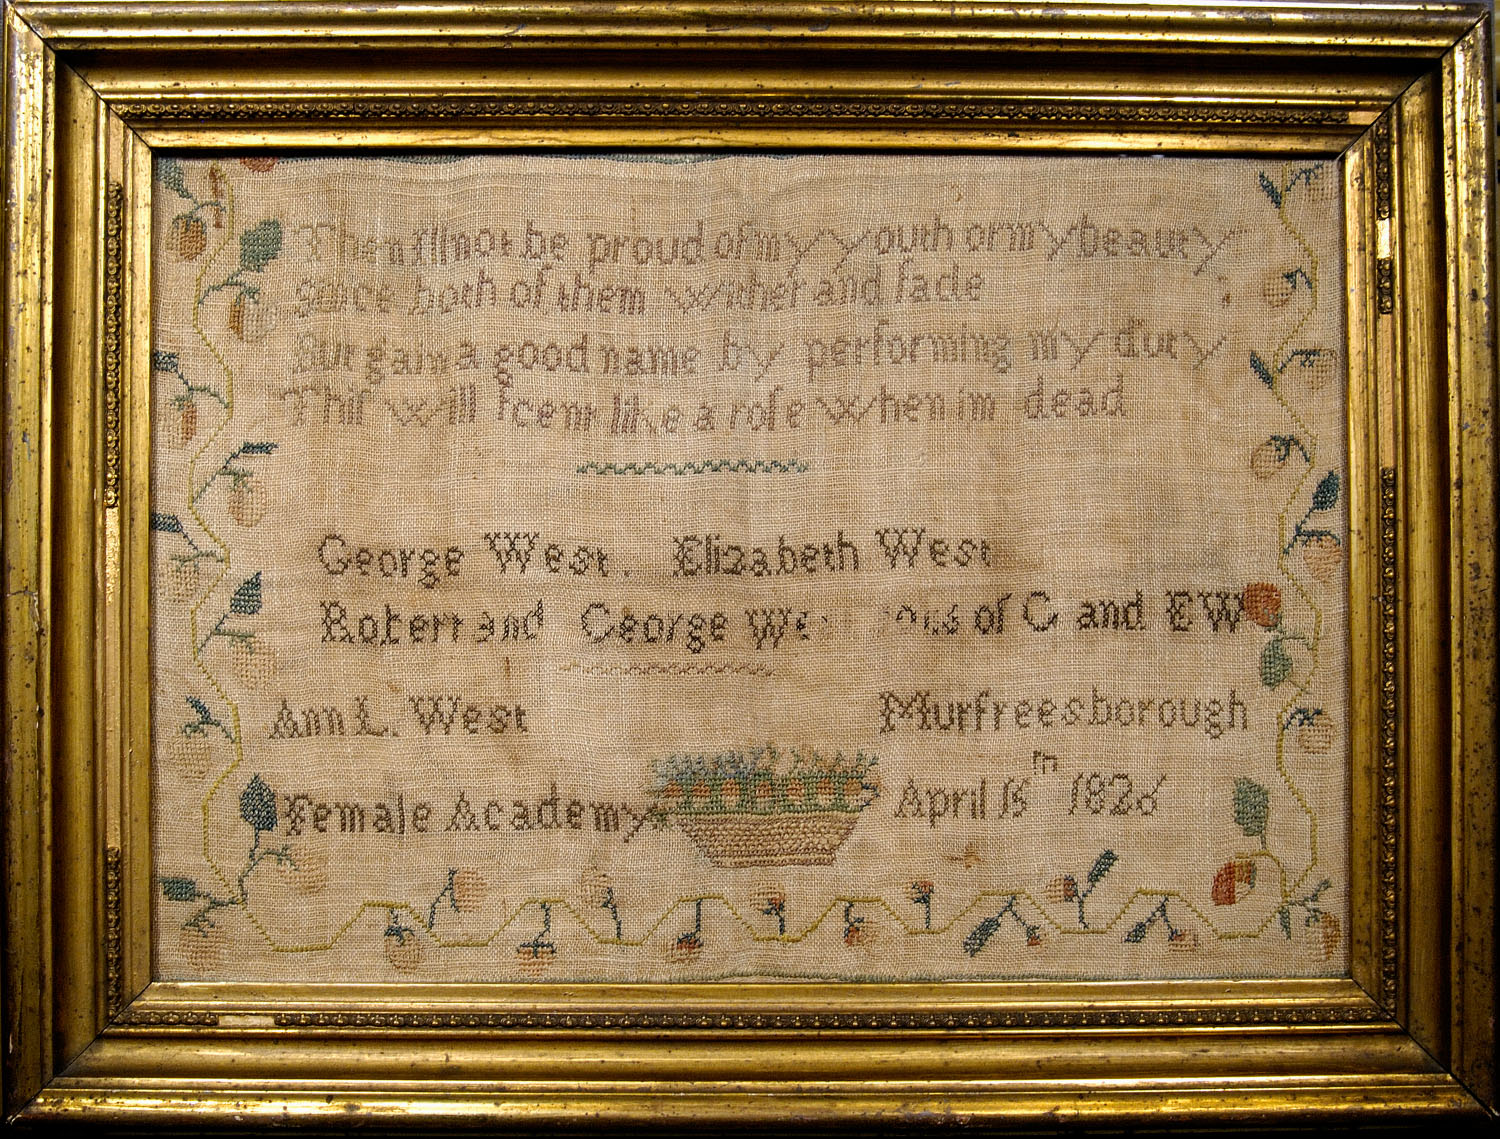 Then I'll not be proud of my youth or my beauty
Since both of them wither and fade
But gain a good name by performing my duty
This will scent like a rose when im dead
George West. Elizabeth West
Robert and George of G and E W
Ann L. West Murfreesborough
Female Academy April 15th 1826